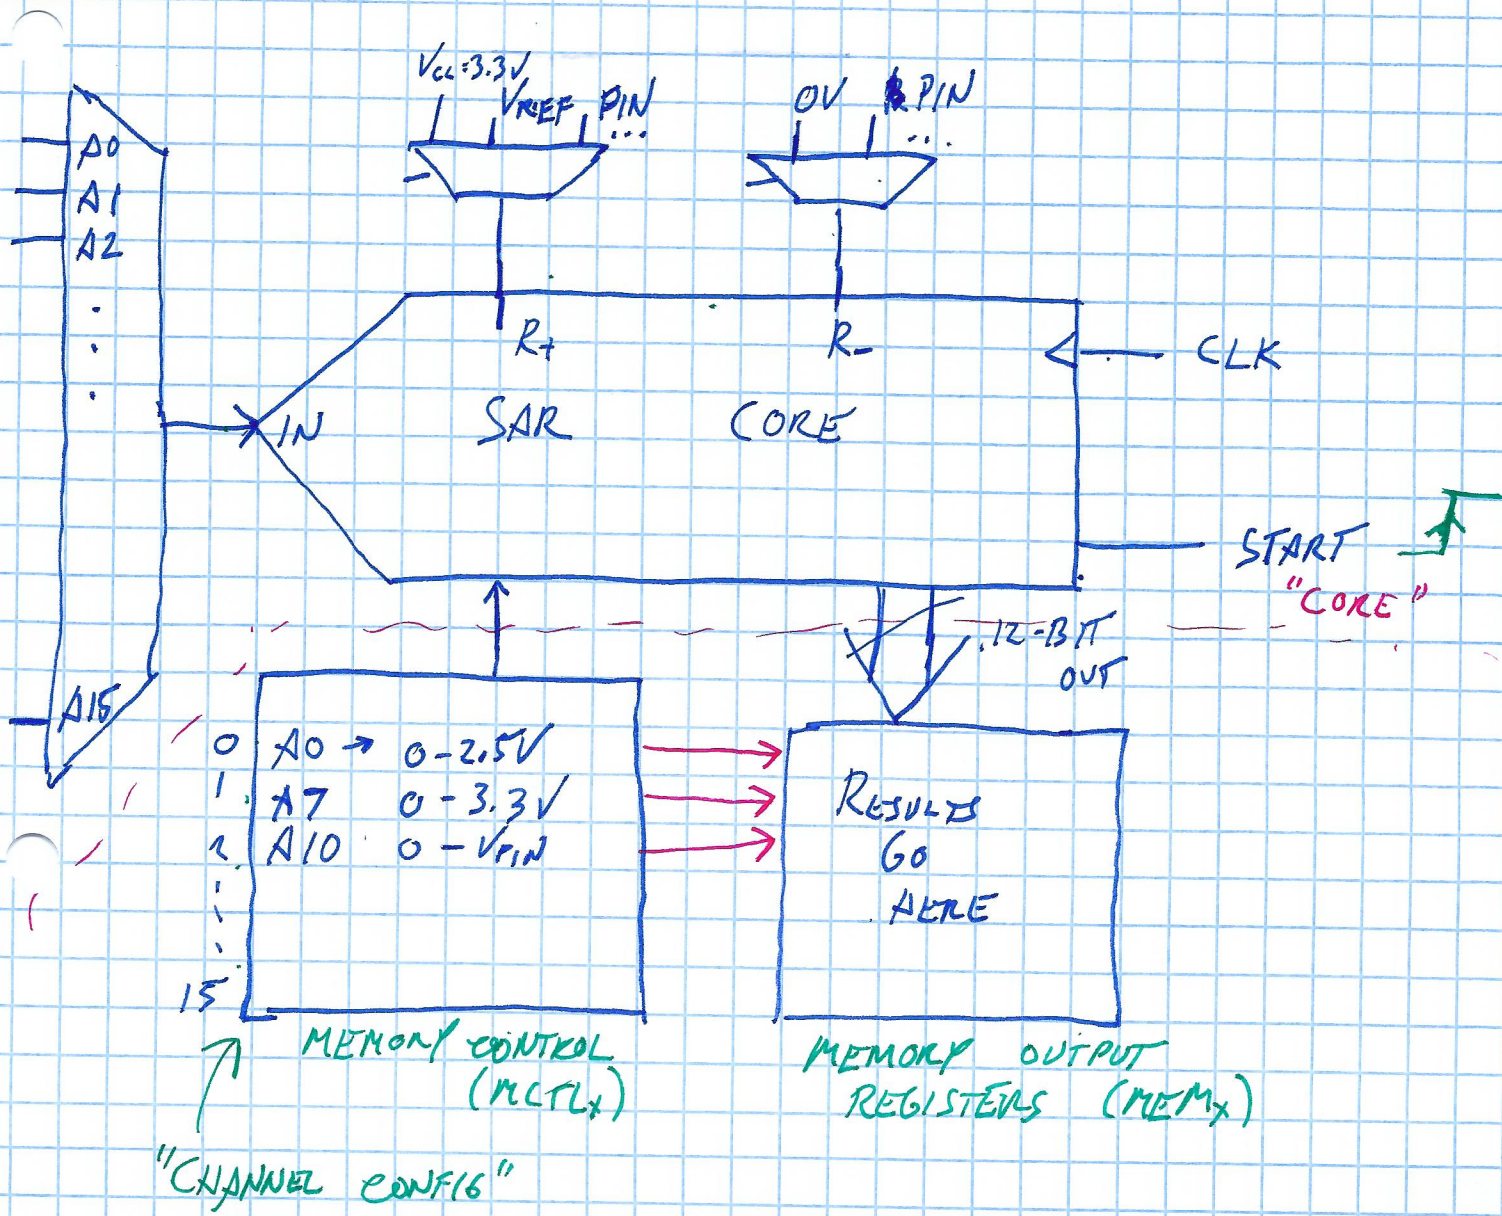 Vcc=3.3V
VREF PIN
...
0V PIN
...
A0
A1
A2
R+
R-
CLK
IN
SAR CORE
START
"CORE"
12-BIT
OUT
A15
0 A0 → 0-2.5V
1 A7 0-3.3V
2 A10 0-VPIN
15
RESULTS
GO
HERE
MEMORY CONTROL
(MCTLx)
MEMORY OUTPUT
REGISTERS (MEMx)
"CHANNEL CONFIG"